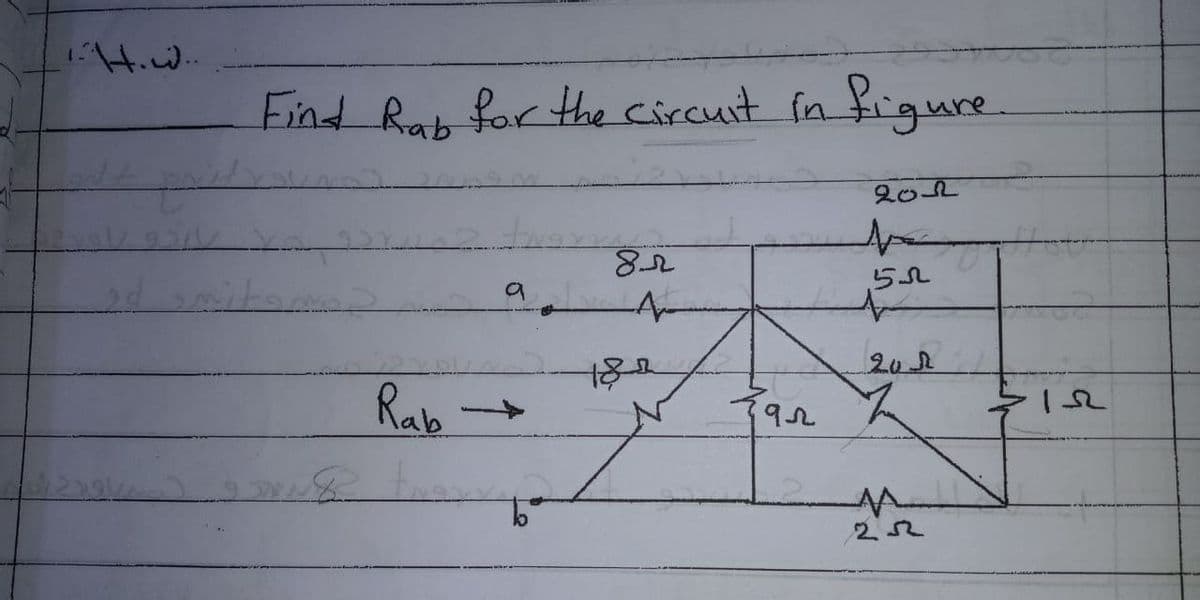 1:- H.w..
Find Rab for the circuit in figure.
20Ω
8Ω
5Ω
a
18Ω
20Ω
Rab →
9Ω
1Ω
b
2Ω